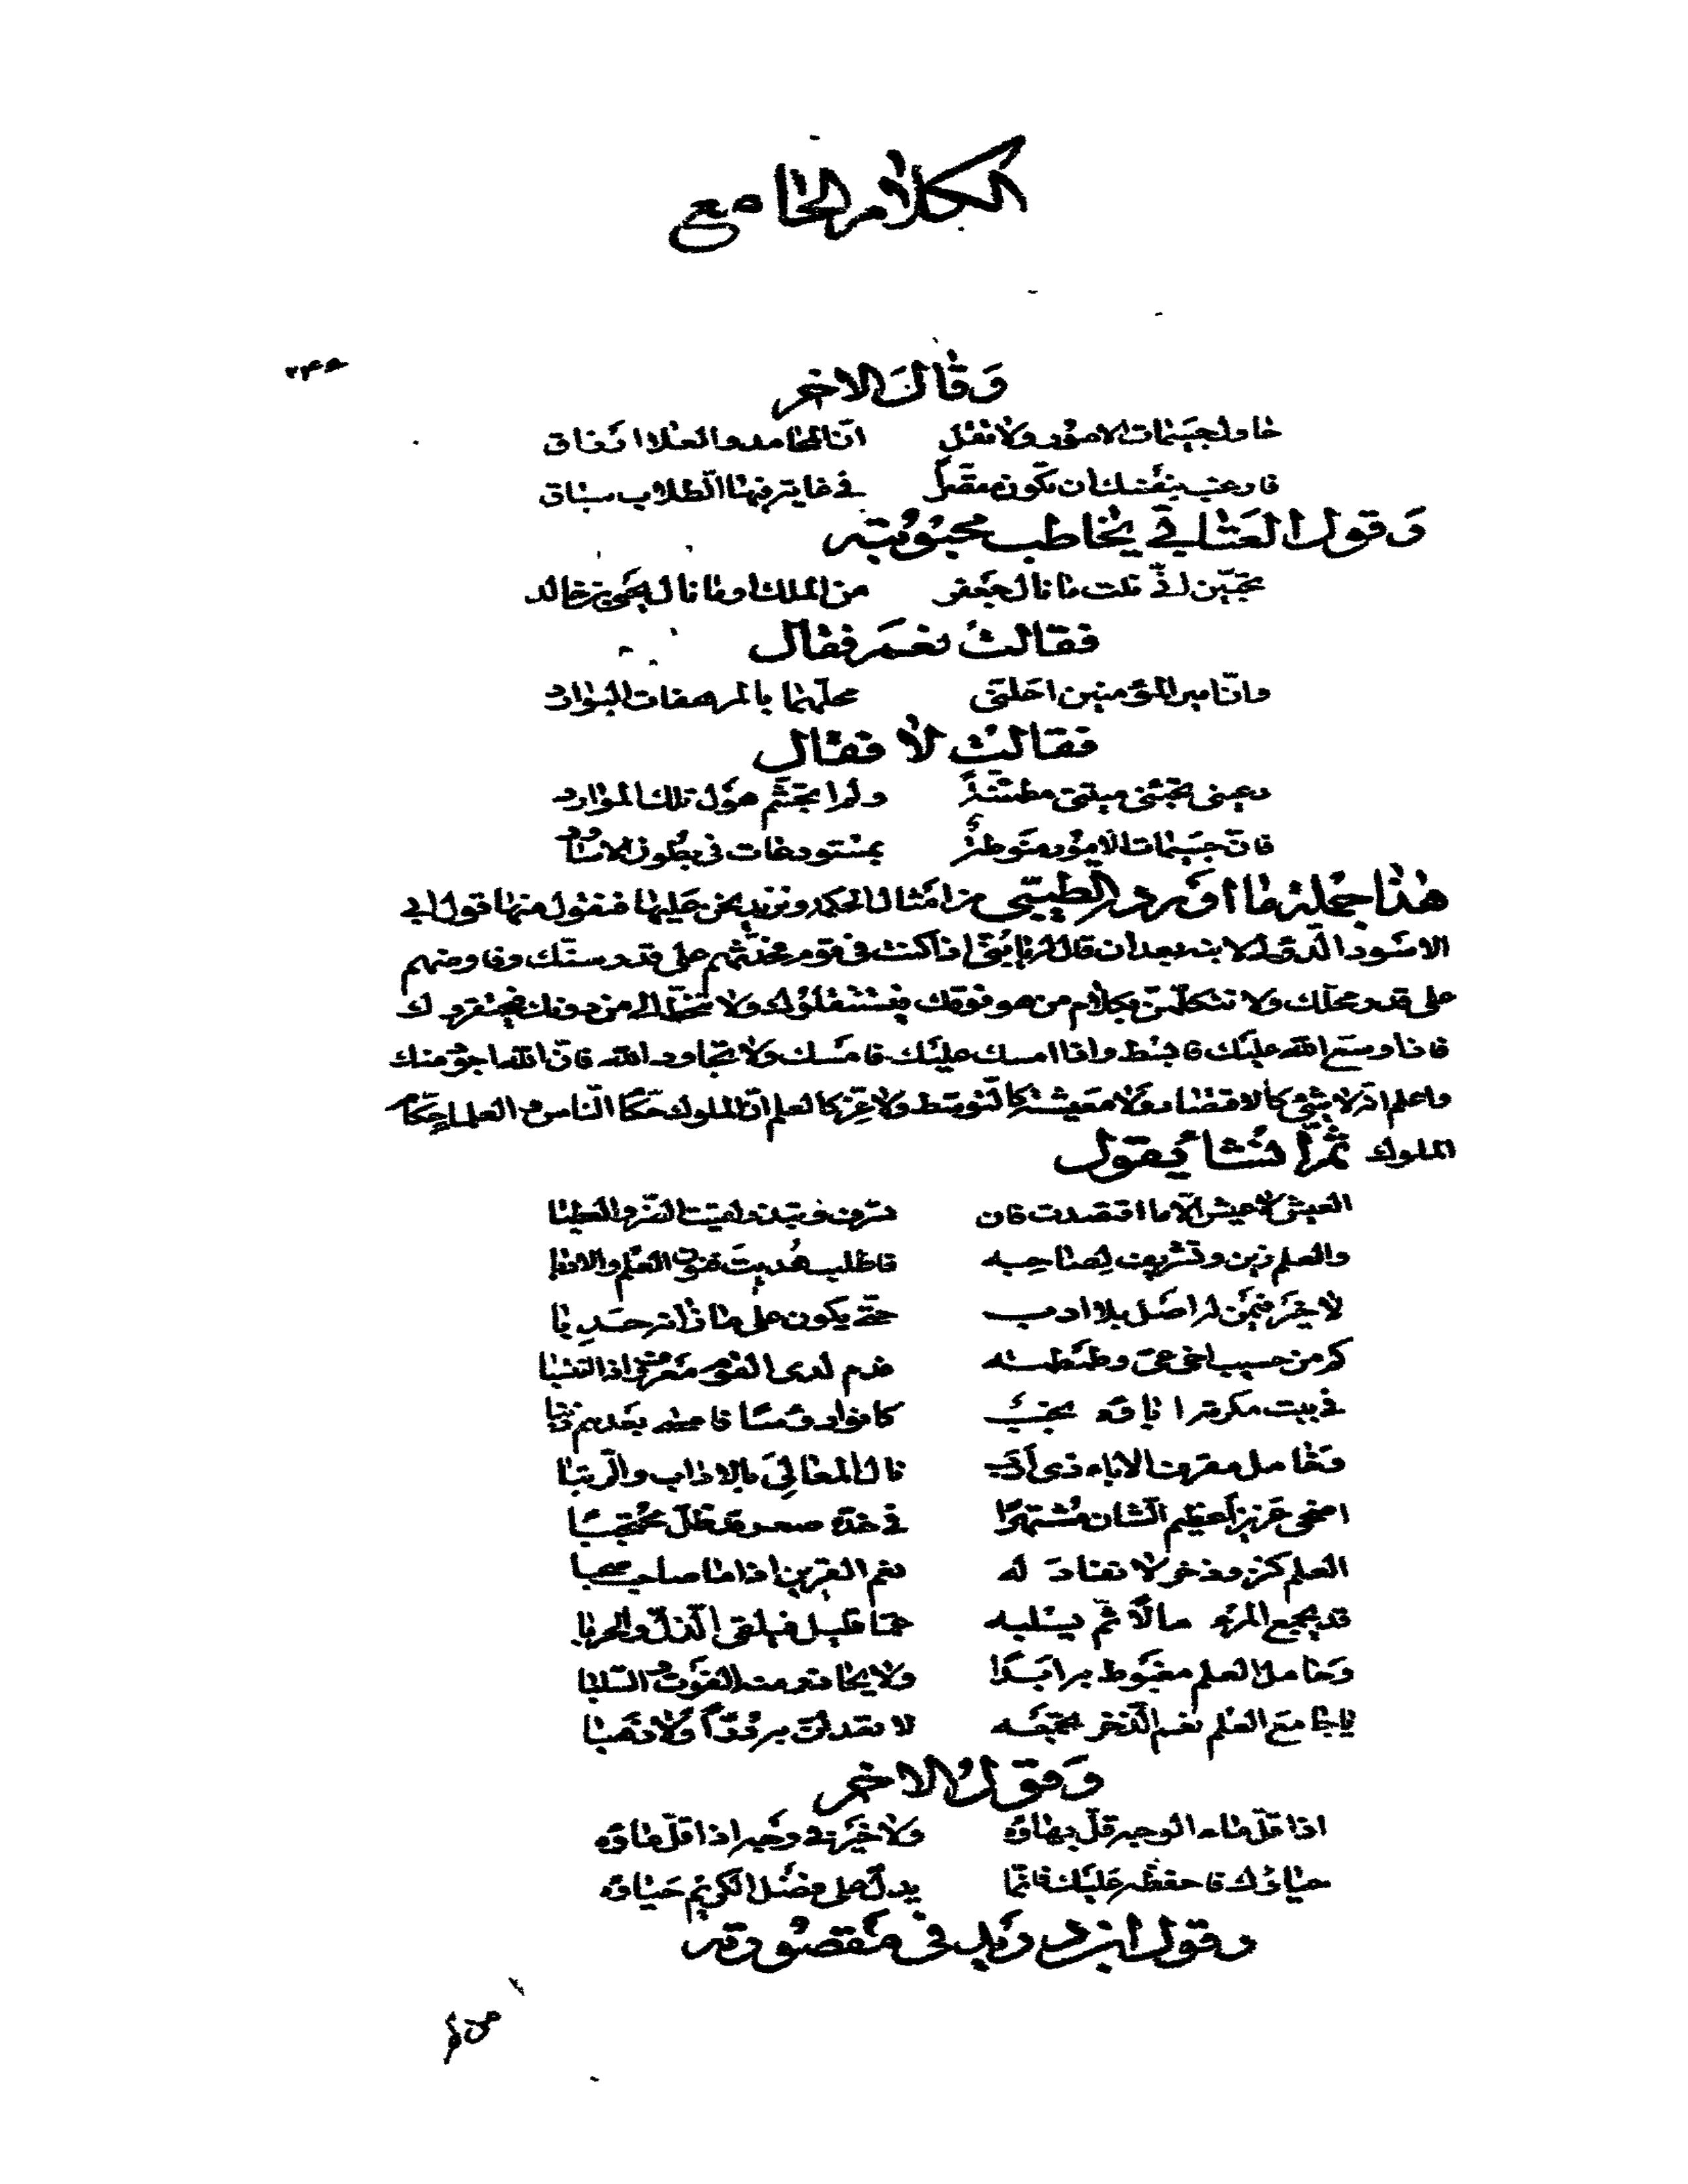 الكلام الجامع
وقال الاخر
حاول جسيمات الامور ولا تقل    انّ المحامد والعلا ارزاق
فارغب بنفسك ان تكون مقصراً    في غاية فيها الطلاب سباق
وقول العتابي يخاطب محبوبته
تحبّين انّي نلت ما نال جعفر    من الملك او ما نال يحيى بن خالد
فقالت نعم فقال
وانّ امير المؤمنين احلني    محلّهما بالمرهفات البوارد
فقالت لا فقال
دعيني تجئني ميتتي مطمئنةً    ولم اتجشّم هول تلك الموارد
فانّ جسيمات الامور منوطةٌ    بمستودعات في بطون الاساود
هذا جملة ما اورد الطيبي من امثال الحكم ونزيد نحن عليها فنقول منها قول ابي
الاسود الدؤلي لابنه بعد ان قال له يا بنيّ اذا كنت في قوم فحدّثهم على قدر سنّك وفاوضهم
على قدر محلّك ولا تتكلّمنّ بكلام من هو فوقك فيستثقلوك ولا تنحطّ الى من دونك فيحتقروك
فاذا وسّع الله عليك فابسط واذا امسك عليك فامسك ولا تجاود الله فانّ الله اجود منك
واعلم انّه لا شيء كالاقتصاد ولا معيشة كالتوسط ولا عزّ كالعلم انّ الملوك حكّام النّاس والعلماء حكّام
الملوك ثمّ انشأ يقول
العيش لا عيش الّا ما اقتصدت فان    تسرف وتبذر لقيت الضر والعطبا
والعلم زين وتشريف لصاحبه    فاطلب هديت فنون العلم والادبا
لا خير فيمن له اصل بلا ادب    حتّى يكون على ما زانه حدبا
كم من حسيب اخي عيّ وطمطمة    فدم لدى القوم معروف اذا انتسبا
في بيت مكرمة اباؤه نجبٌ    كانوا رؤسا فامسى بعدهم ذنبا
وخامل مقرف الاباء ذي ادب    نال المعالي بالاداب والرّتبا
امسى عزيزا عظيم الشان مشتهرا    في خدّه صعر قد ظلّ محتجبا
العلم كنز وذخر لا نفاد له    نعم القرين اذا ما صاحب صحبا
قد يجمع المرء مالا ثمّ يسلبه    عمّا قليل فيلقى الذلّ والحربا
وحامل العلم مغبوط به ابدا    ولا يحاذر منه الفوت والسّلبا
يا جامع العلم نعم الذخر تجمعه    لا تعدلنّ به درّاً ولا ذهبا
وقول الاخر
اذا قلّ ماء الوجه قلّ بهاؤه    ولا خير في وجه اذا قلّ ماؤه
حياؤك فاحفظه عليك فانّما    يدلّ على فضل الكريم حياؤه
وقول ابن دريد في مقصورته